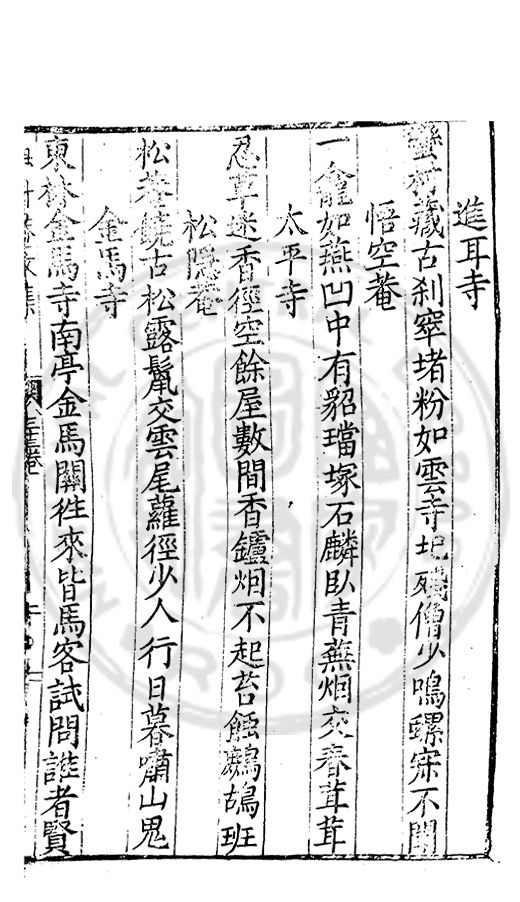 進耳寺
蠻村藏古刹窣堵粉如雲寺圮殘僧少鳴螺寂不聞
悟空菴
一龕如燕凹中有貂璫塚石麟臥青蕪烟交春茸茸
太平寺
忍草迷香徑空餘屋數間香鑪烟不起苔蝕鷓鴣班
松隱菴
松菴饒古松露鬣交雲尾蘿徑少人行日暮嘯山鬼
金馬寺
東林金馬寺南亭金馬關徃來皆馬客試問誰者賢